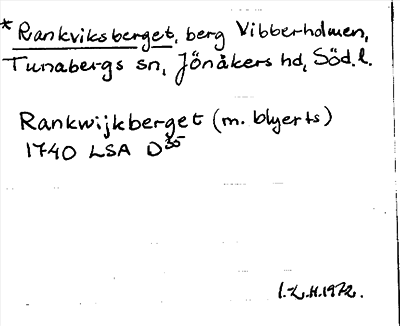 *Rankviksberget, berg Vibberholmen,
Tunabergs sn, Jönåkers hd, Söd.l.
Rankwijkberget (m. blyerts)
1740 LSA D35
I.L.H.1972.